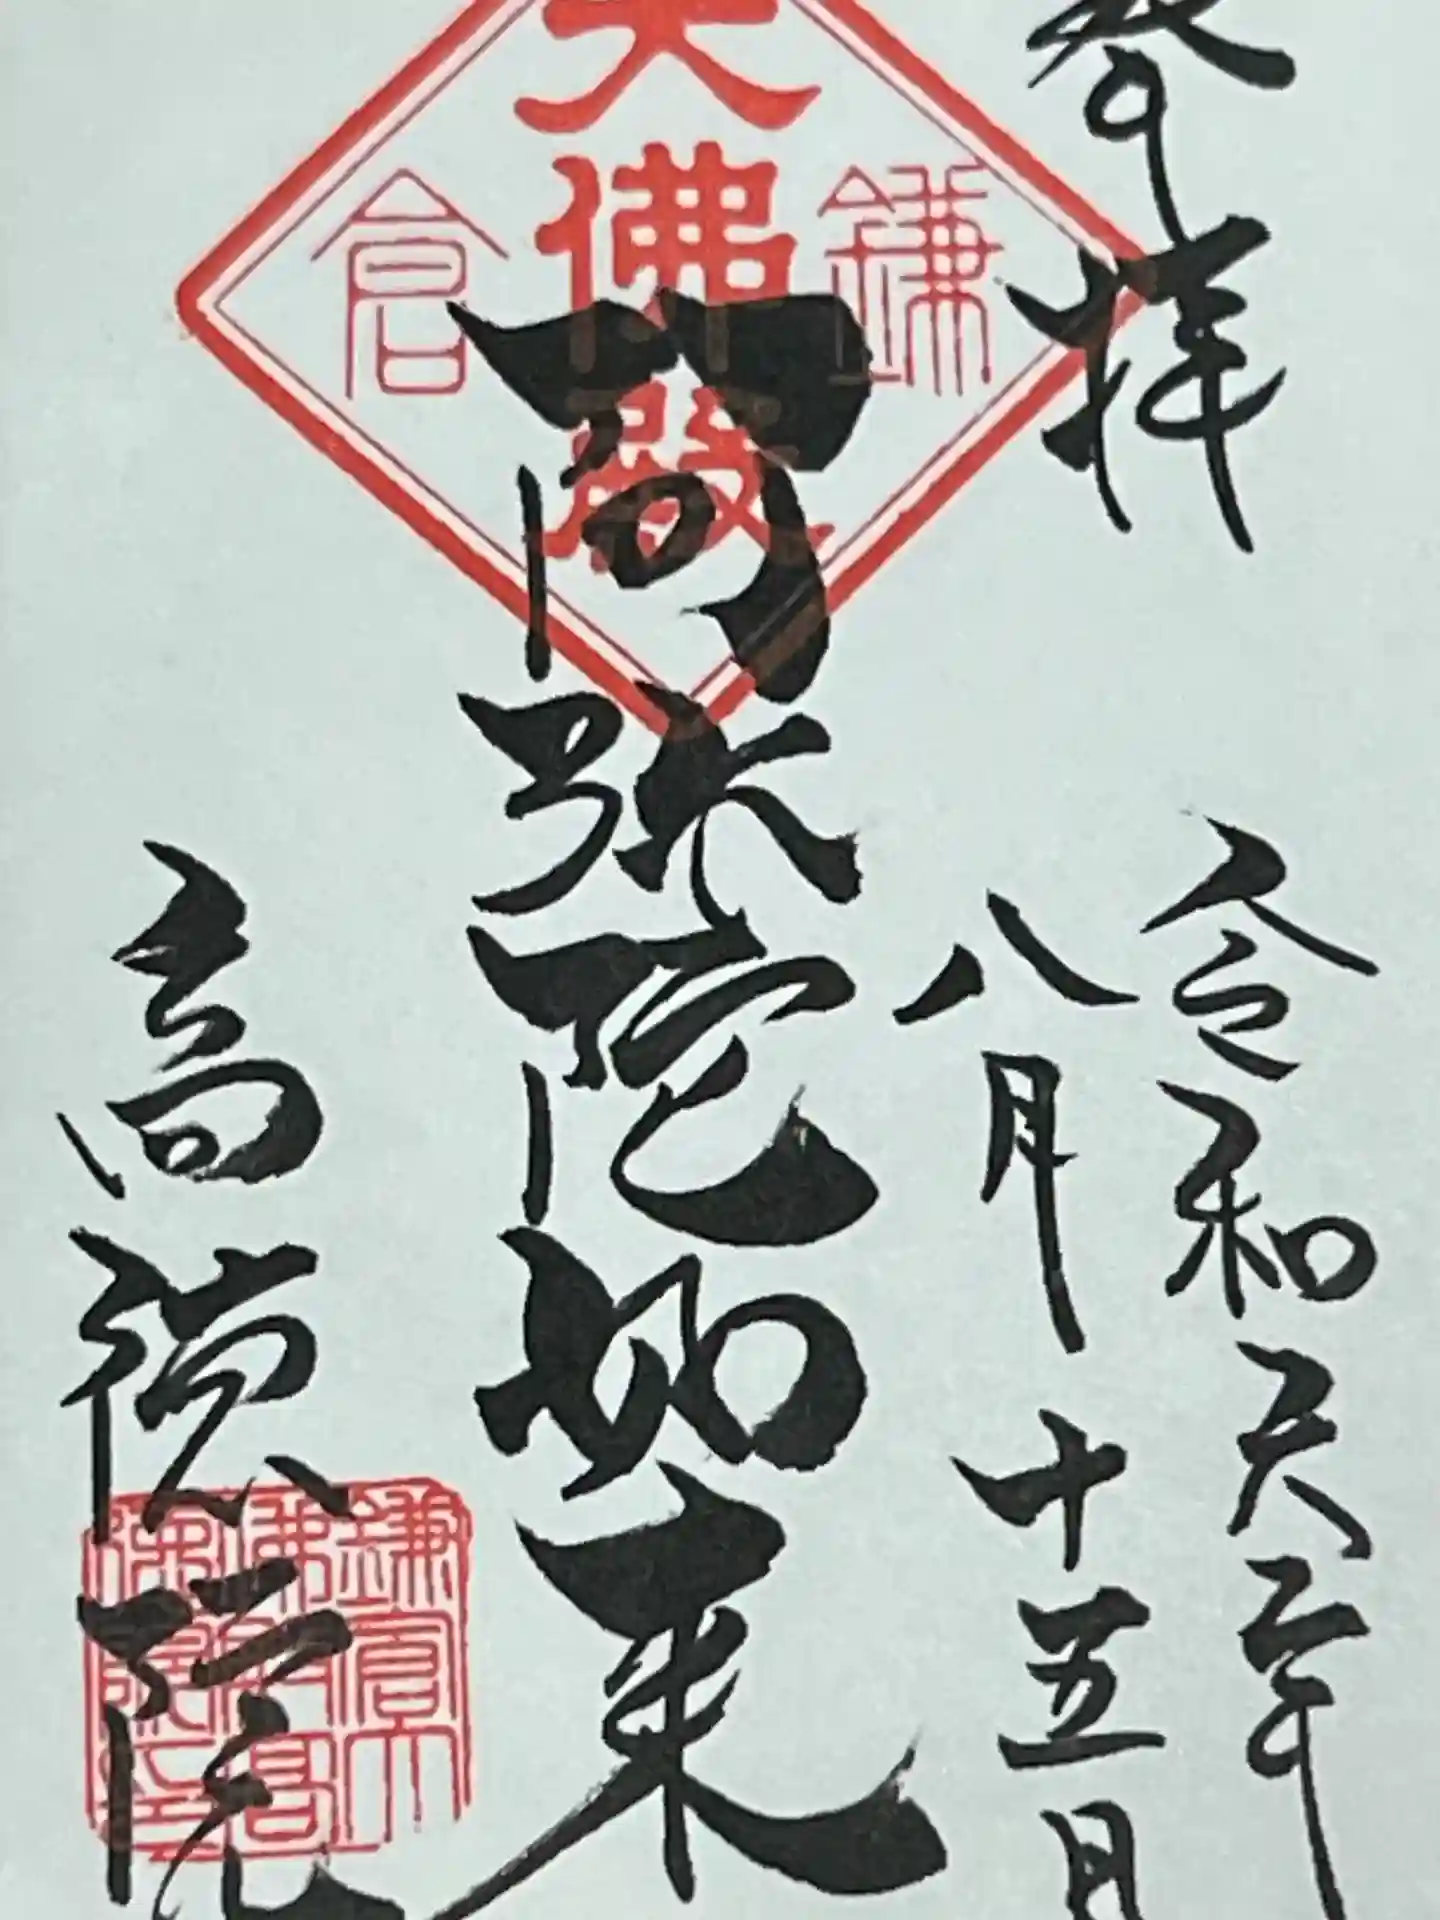 奉拝
令和 年
八月十五日
鎌倉
大佛殿
阿弥陀如来
高徳院
鎌倉大
佛殿高
徳院印